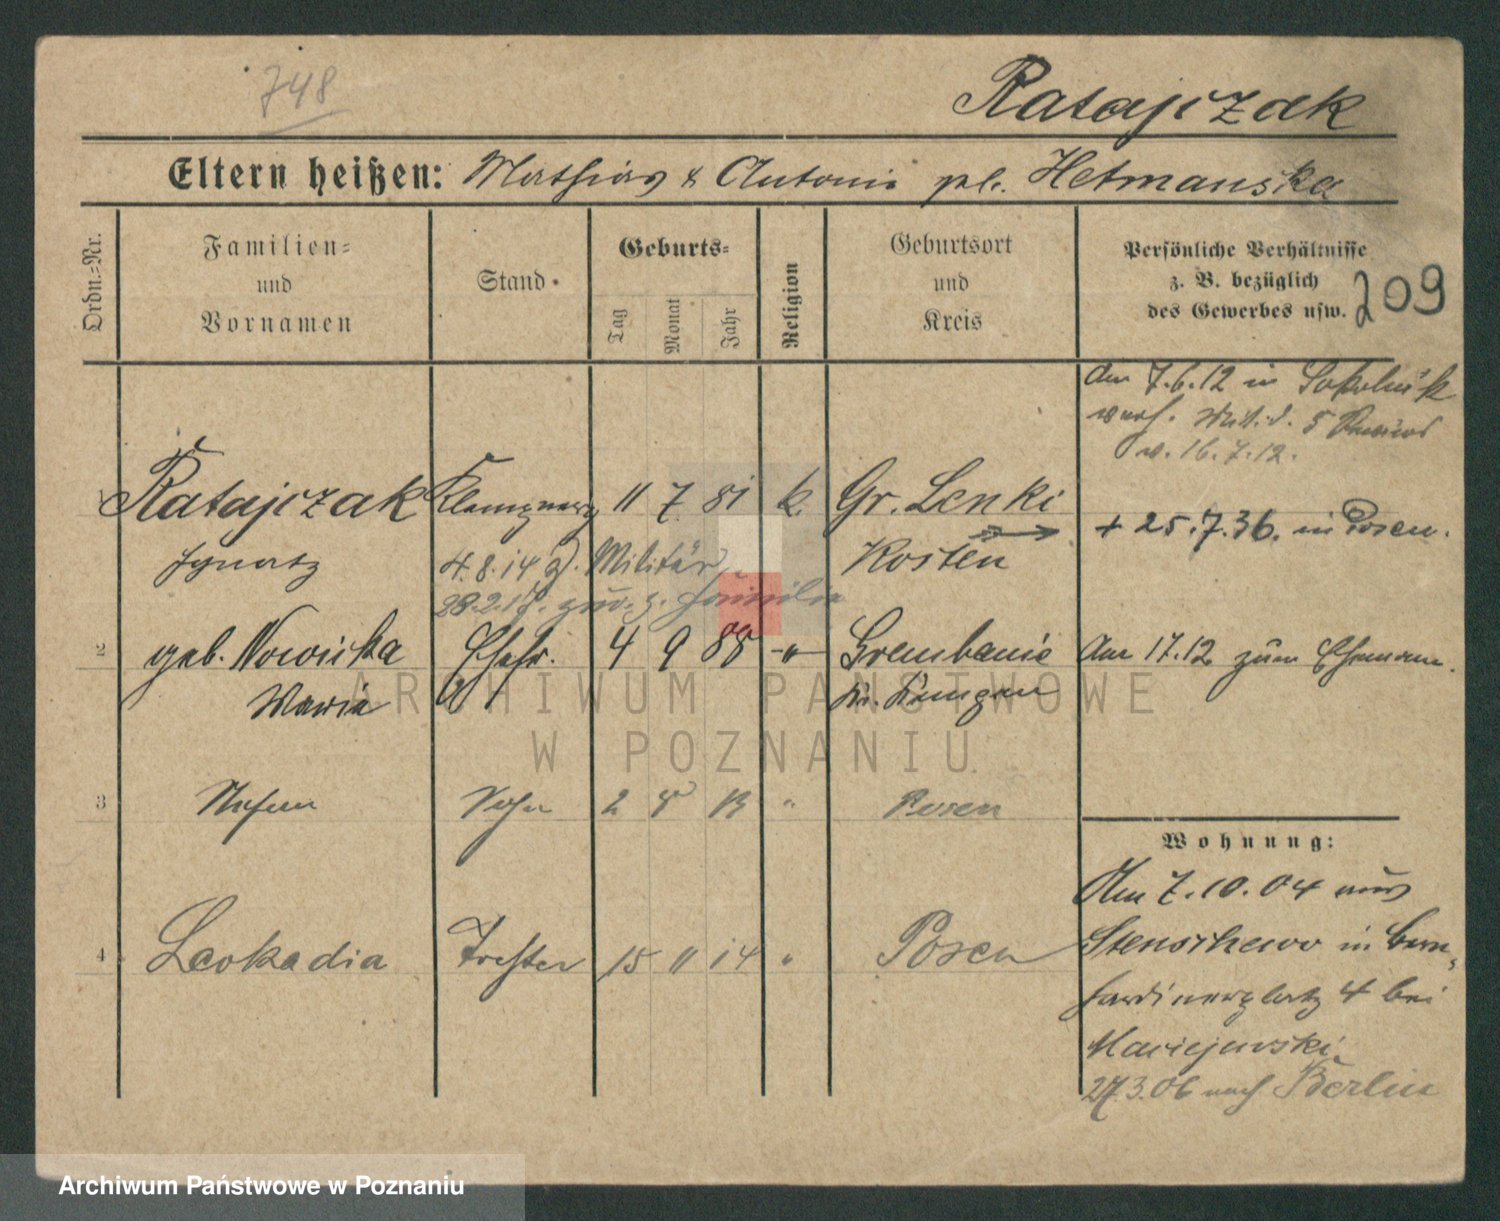 748
Ratajczak
Eltern heißen: Mathias & Antonie geb. Hetmanska
Ordn.=Nr.
Familien=
und
Vornamen
Stand
Geburts=
Tag
Monat
Jahr
Religion
Geburtsort
und
Kreis
Persönliche Verhältnisse
z. B. bezüglich
des Gewerbes usw.
209
Am 7.6.12 in
5
v. 16.7.12.
1 Ratajczak Klempnerg 11 7. 81 k. Gr. Lenki
Ignatz Kosten
+ 25.7.36. in Posen.
4.8.14 z. Militär
28.2.18. zur. z. Familie
2 geb. Nowicka Ehefr. 4 9 88 -"- Grembanie
Maria Kr. Kempen
Am 17.12 zum Ehemann.
3 Stefan Sohn 2 8 13 " Posen
4 Leokadia Tochter 15 11 14 " Posen
Wohnung:
Am 7.10.04 aus
Stenschewo in Bern-
hardinerplatz 4 bei
Maciejewski.
27.3.06 nach Berlin
ARCHIWUM PAŃSTWOWE
W POZNANIU
Archiwum Państwowe w Poznaniu